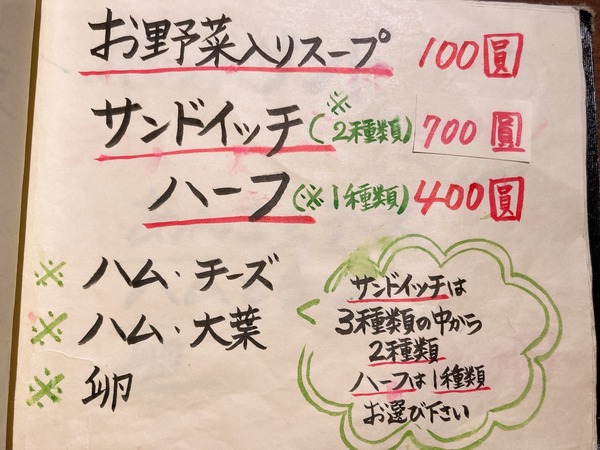 お野菜入りスープ 100圓
サンドイッチ(※2種類) 700圓
ハーフ(※1種類) 400圓
※ ハム・チーズ
※ ハム・大葉
※ 卵
サンドイッチは
3種類の中から
2種類
ハーフは1種類
お選び下さい